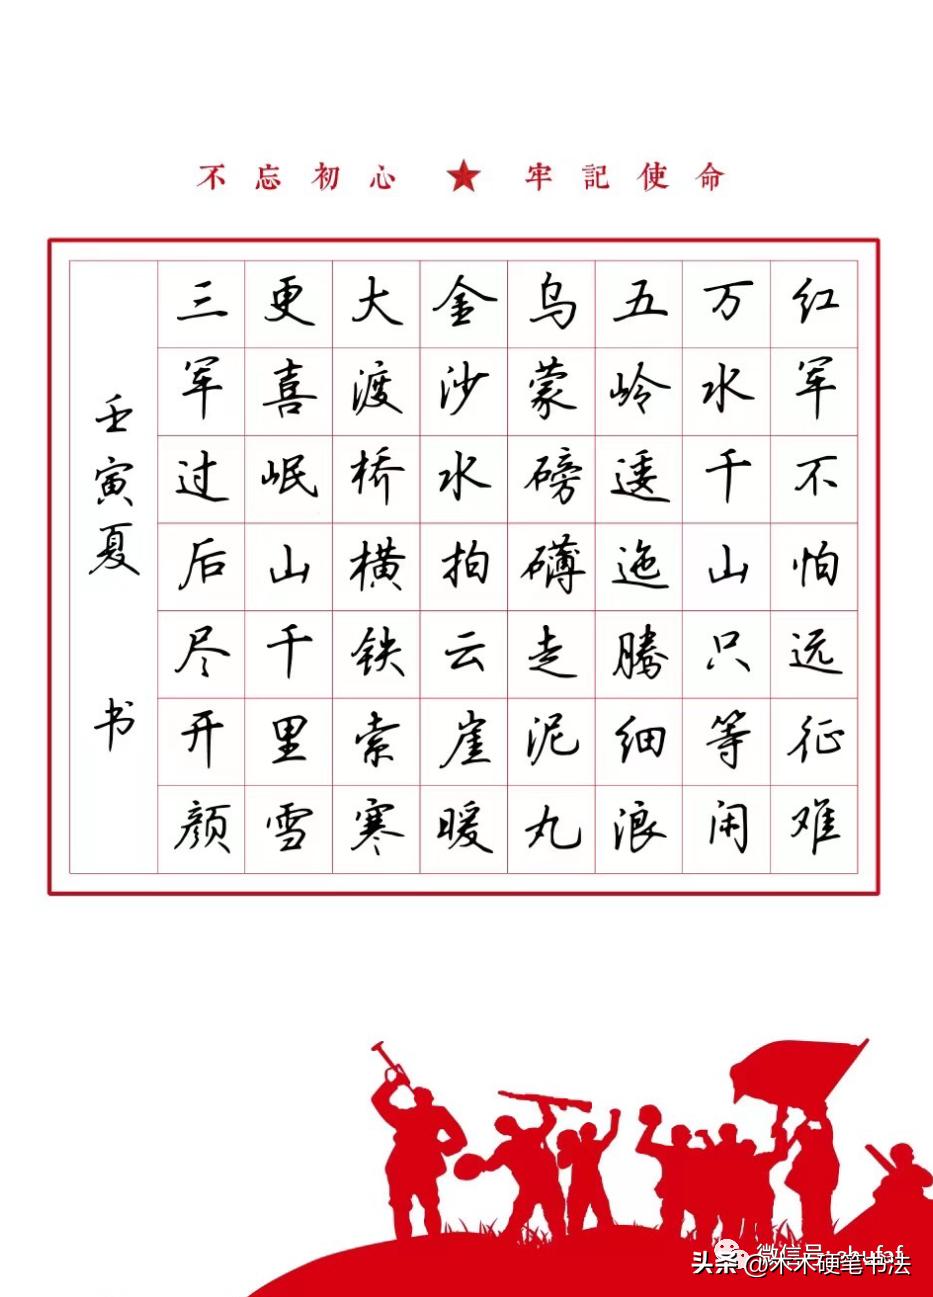 不忘初心★牢記使命
红军不怕远征难
万水千山只等闲
五岭逶迤腾细浪
乌蒙磅礴走泥丸
金沙水拍云崖暖
大渡桥横铁索寒
更喜岷山千里雪
三军过后尽开颜
壬寅夏 书
微信号: shufaf
头条@木木硬笔书法